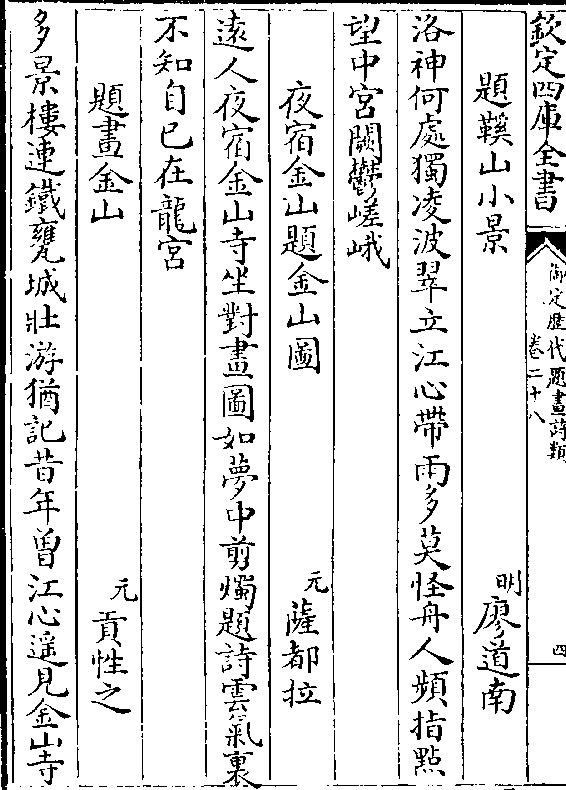 欽定四庫全書
御定歴代題畫詩類
卷二十八
四
題鞵山小景
明
廖道南
洛神何處獨凌波翠立江心帶雨多莫怪舟人頻指點
望中宮闕鬱嵯峨
夜宿金山題金山圖
元
薩都拉
遠人夜宿金山寺坐對畫圖如夢中剪燭題詩雲氣裏
不知自已在龍宮
題畫金山
元
貢性之
多景樓連鐵甕城壯游猶記昔年曽江心遥見金山寺